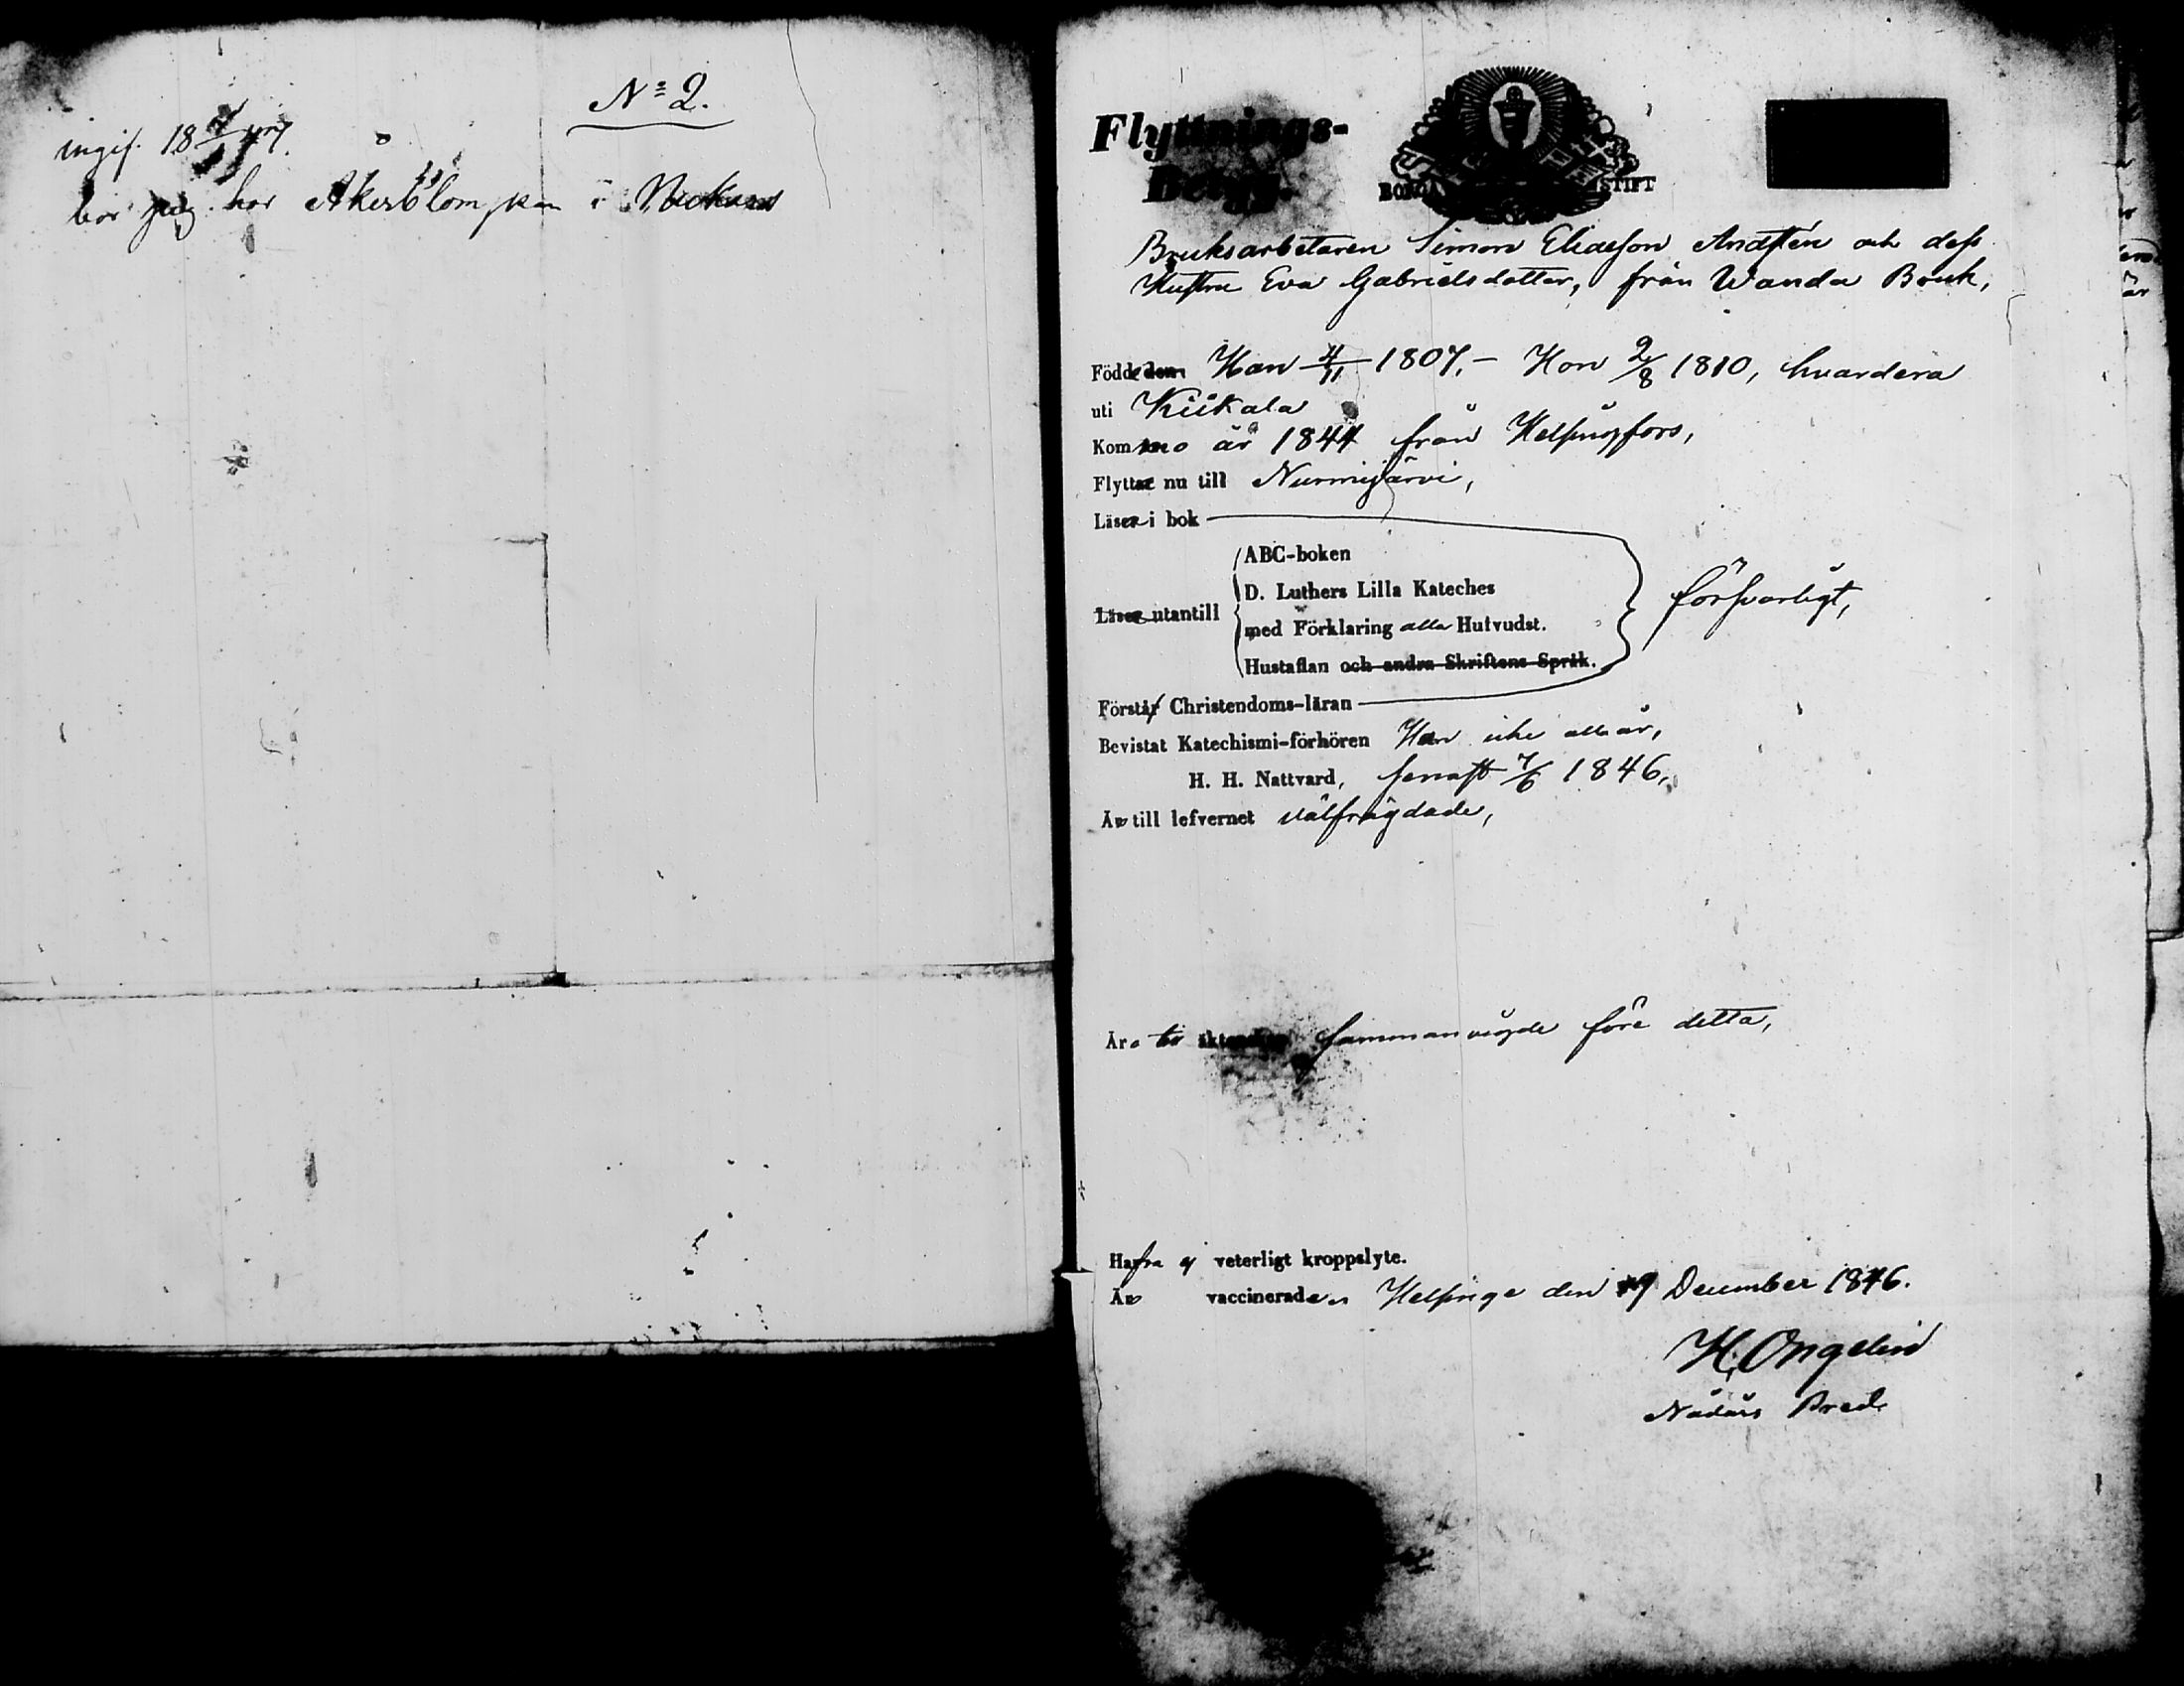 No 2.
ingif. 18 4/1 47.
bor hos Åkerblomskan i Nackans
Flyttnings-
Betyg.
BORGÅ STIFT
Bruksarbetaren Simon Eliaesson Andstén och dess
Hustru Eva Gabrielsdotter, från Wanda Bruk,
Födde den Han 4/11 1807. – Hon 2/8 1810, hvardera
uti Kiikala
Kommo år 1844 från Helsingfors,
Flytta nu till Nurmijärvi,
Läsa i bok
ABC-boken
D. Luthers Lilla Kateches
Läsa utantill
med Förklaring alla Hufvudst.
Hustaflan och andra Skriftens Språk.
försvarligt,
Förstå Christendoms-läran
Bevistat Katechismi-förhören Han icke alla år,
H. H. Nattvard, senast 7/6 1846,
Äro till lefvernet välfrägdade,
Äro till äktenskap sammanvigde före detta,
Hafva ej veterligt kroppslyte.
Äro vaccinerade. Helsinge den 19 December 1846.
H. Ongelin
Nådårs Pred.